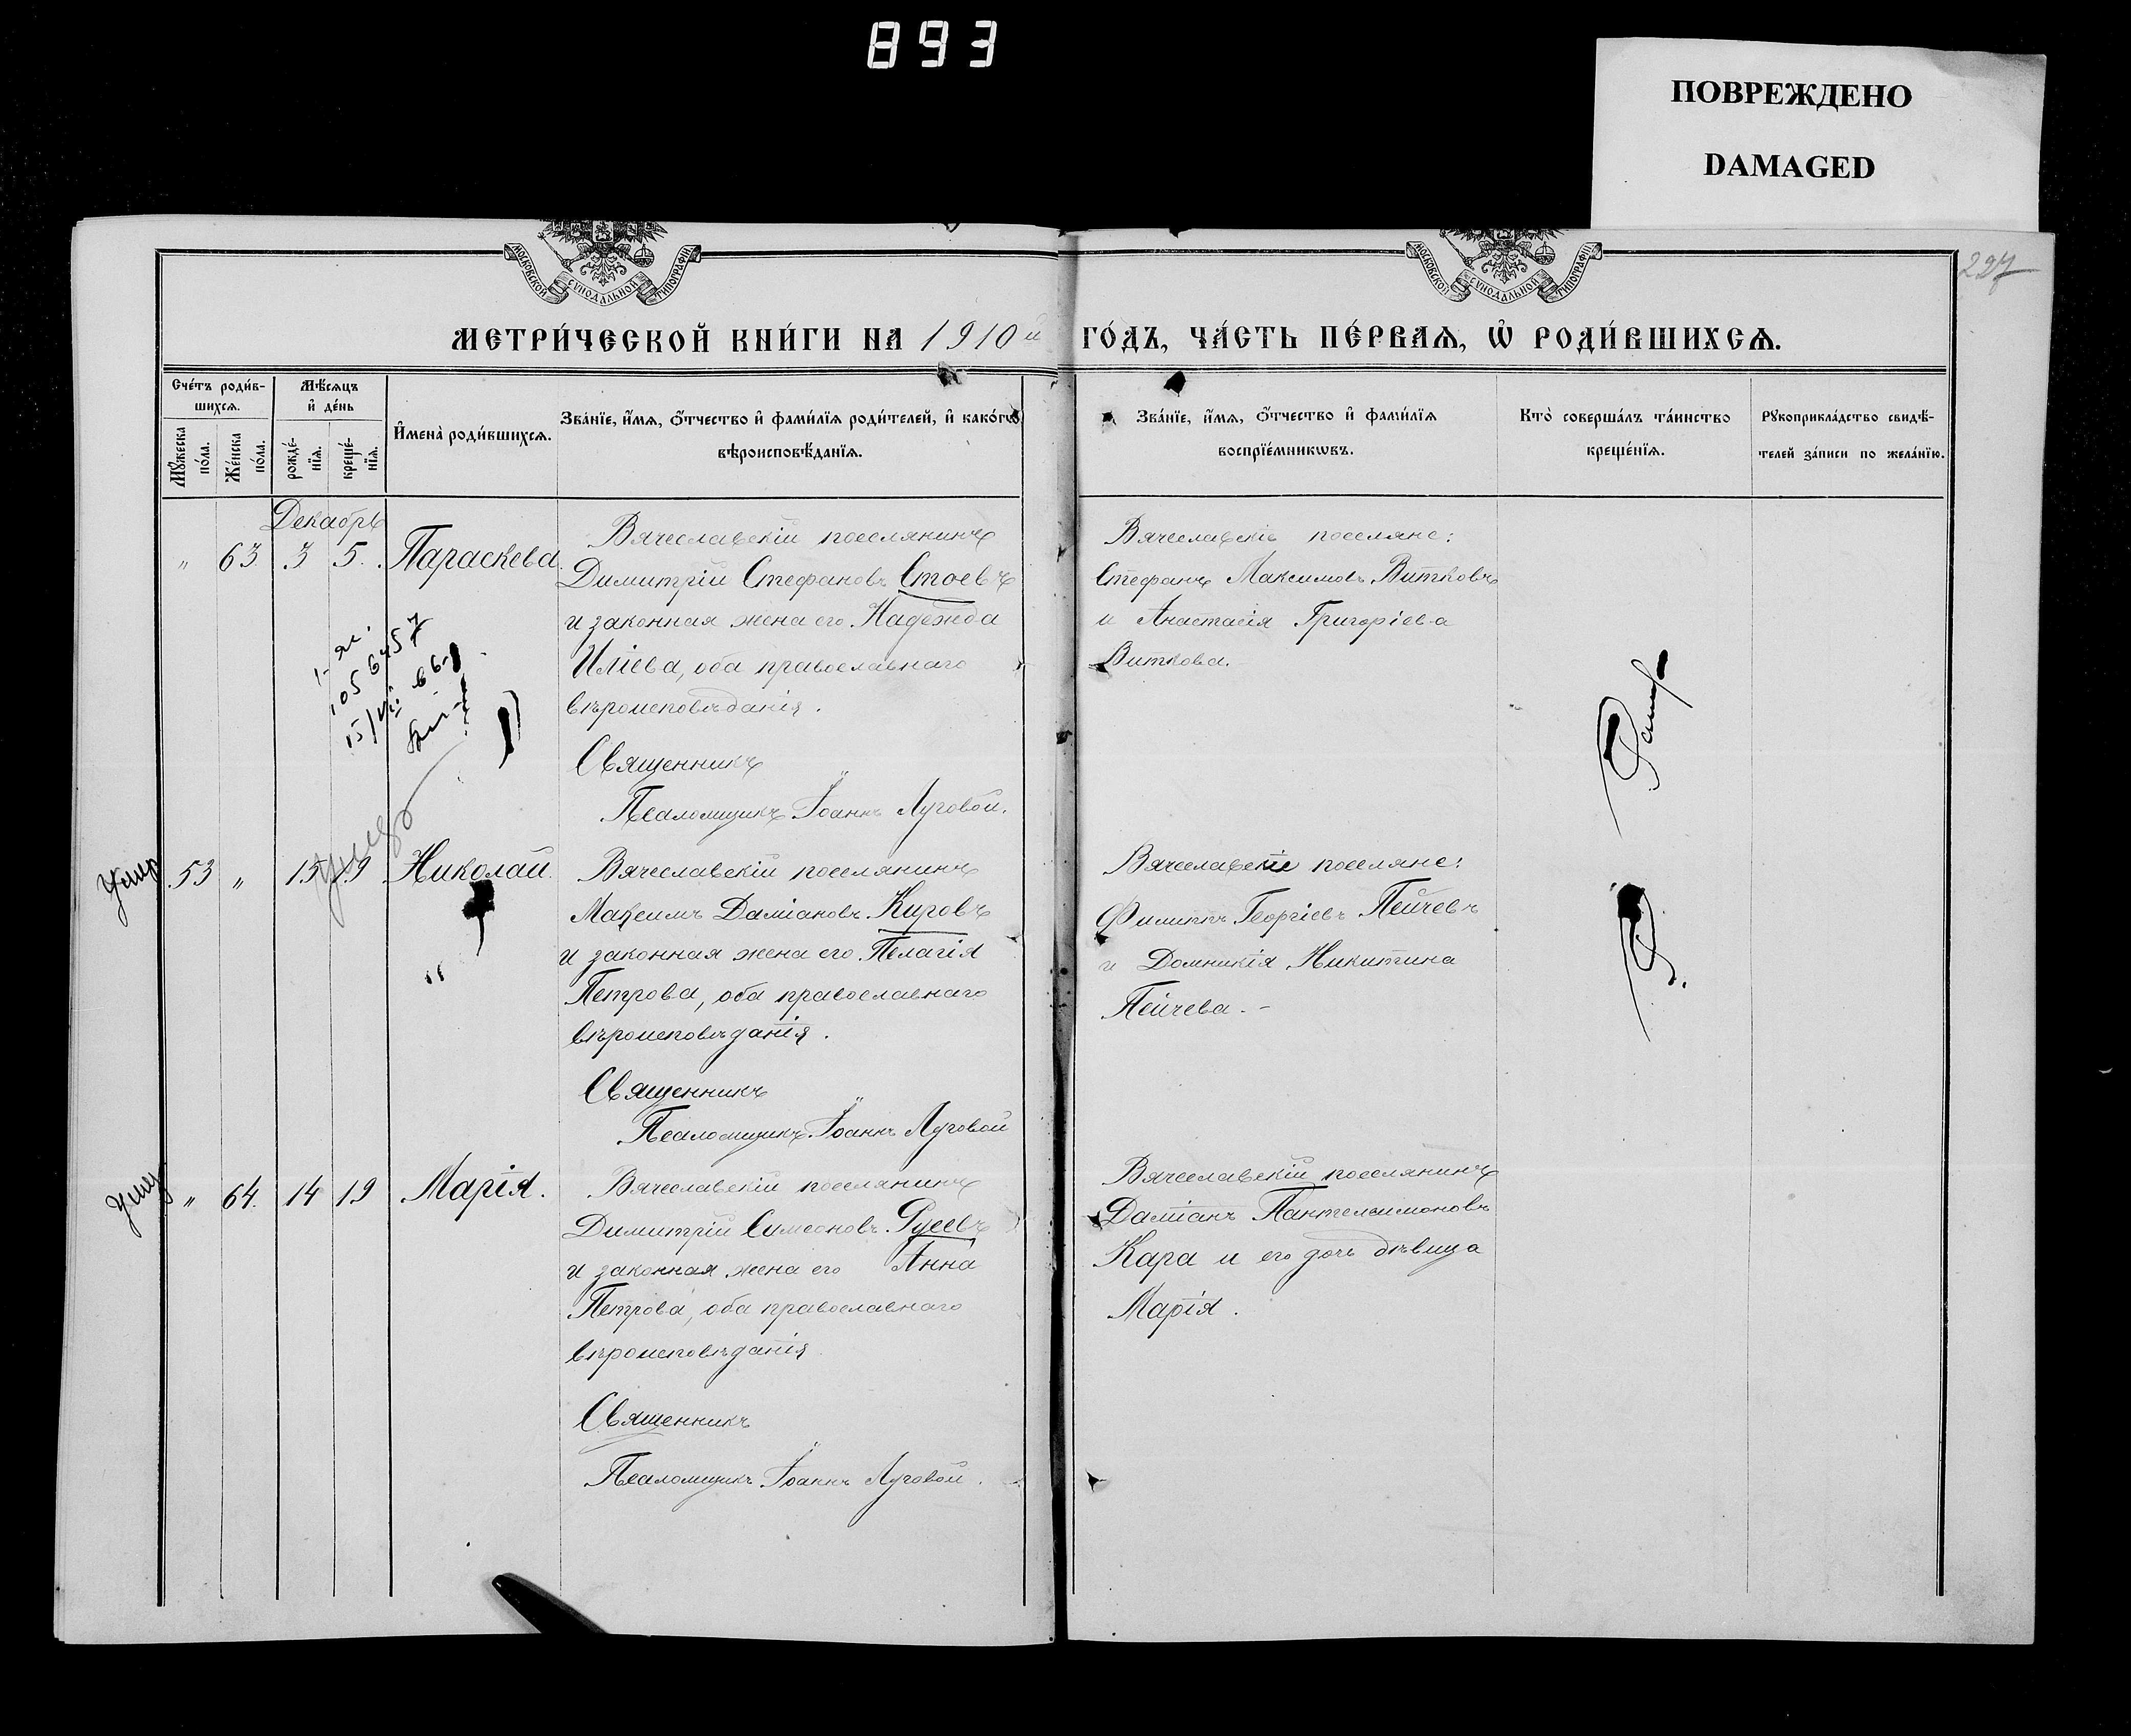 893
ПОВРЕЖДЕНО
DAMAGED
МОСКОВСКОЙ СѴНОДАЛЬНОЙ ТИПОГРАФІИ
МОСКОВСКОЙ СѴНОДАЛЬНОЙ ТИПОГРАФІИ
227
МЕТРИ́ЧЕСКОЙ КНИ́ГИ НА 1910й ГО́ДЪ, ЧА́СТЬ ПЕ́РВАѦ, Ѡ҆ РОДИ́ВШИХСѦ.
Сче́тъ роди́в-
шихсѧ.
Мꙋ́жеска по́ла.
Же́нска по́ла.
Мѣ́сѧцъ
и҆ де́нь
рожде́-
нїѧ.
креще́-
нїѧ.
И҆мена̀ роди́вшихсѧ.
Зва́нїе, и҆́мѧ, ѻ҆́тчество и҆ фами́лїѧ роди́телей, и҆ како́гѡ
вѣроисповѣ́данїѧ.
Зва́нїе, и҆́мѧ, ѻ҆́тчество и҆ фами́лїѧ
воспрїе́мникѡвъ.
Кто̀ соверша́лъ та́инство
креще́нїѧ.
Рꙋкоприкла́дство свидѣ́-
телей за́писи по жела́нїю.
Декабрь
" 63 3 5. Параскева.
Вячеславскій поселянинъ
Димитрій Стефановъ Стоевъ
и законная жена его Надежда
Иліева, оба православнаго
вѣроисповѣданія.
Священникъ
Псаломщикъ Іоаннъ Луговой.
Вячеславскіе поселяне:
Стефанъ Максимовъ Витковъ
и Анастасія Григоріева
Виткова.
Умер
53 " 15 19 Николай.
Вячеславскій поселянинъ
Максимъ Даміановъ Кировъ
и законная жена его Пелагія
Петрова, оба православнаго
вѣроисповѣданія.
Священникъ
Псаломщикъ Іоаннъ Луговой
Вячеславскіе поселяне:
Филиппъ Георгіевъ Пейчевъ
и Домникія Никитина
Пейчева. -
" 64. 14 19 Марія.
Вячеславскій поселянинъ
Димитрій Симеоновъ Русевъ
и законная жена его Анна
Петрова, оба православнаго
вѣроисповѣданія
Священникъ
Псаломщикъ Іоаннъ Луговой.
Вячеславскій поселянинъ
Даміанъ Пантелеимоновъ
Кара и его дочь дѣвица
Марія.